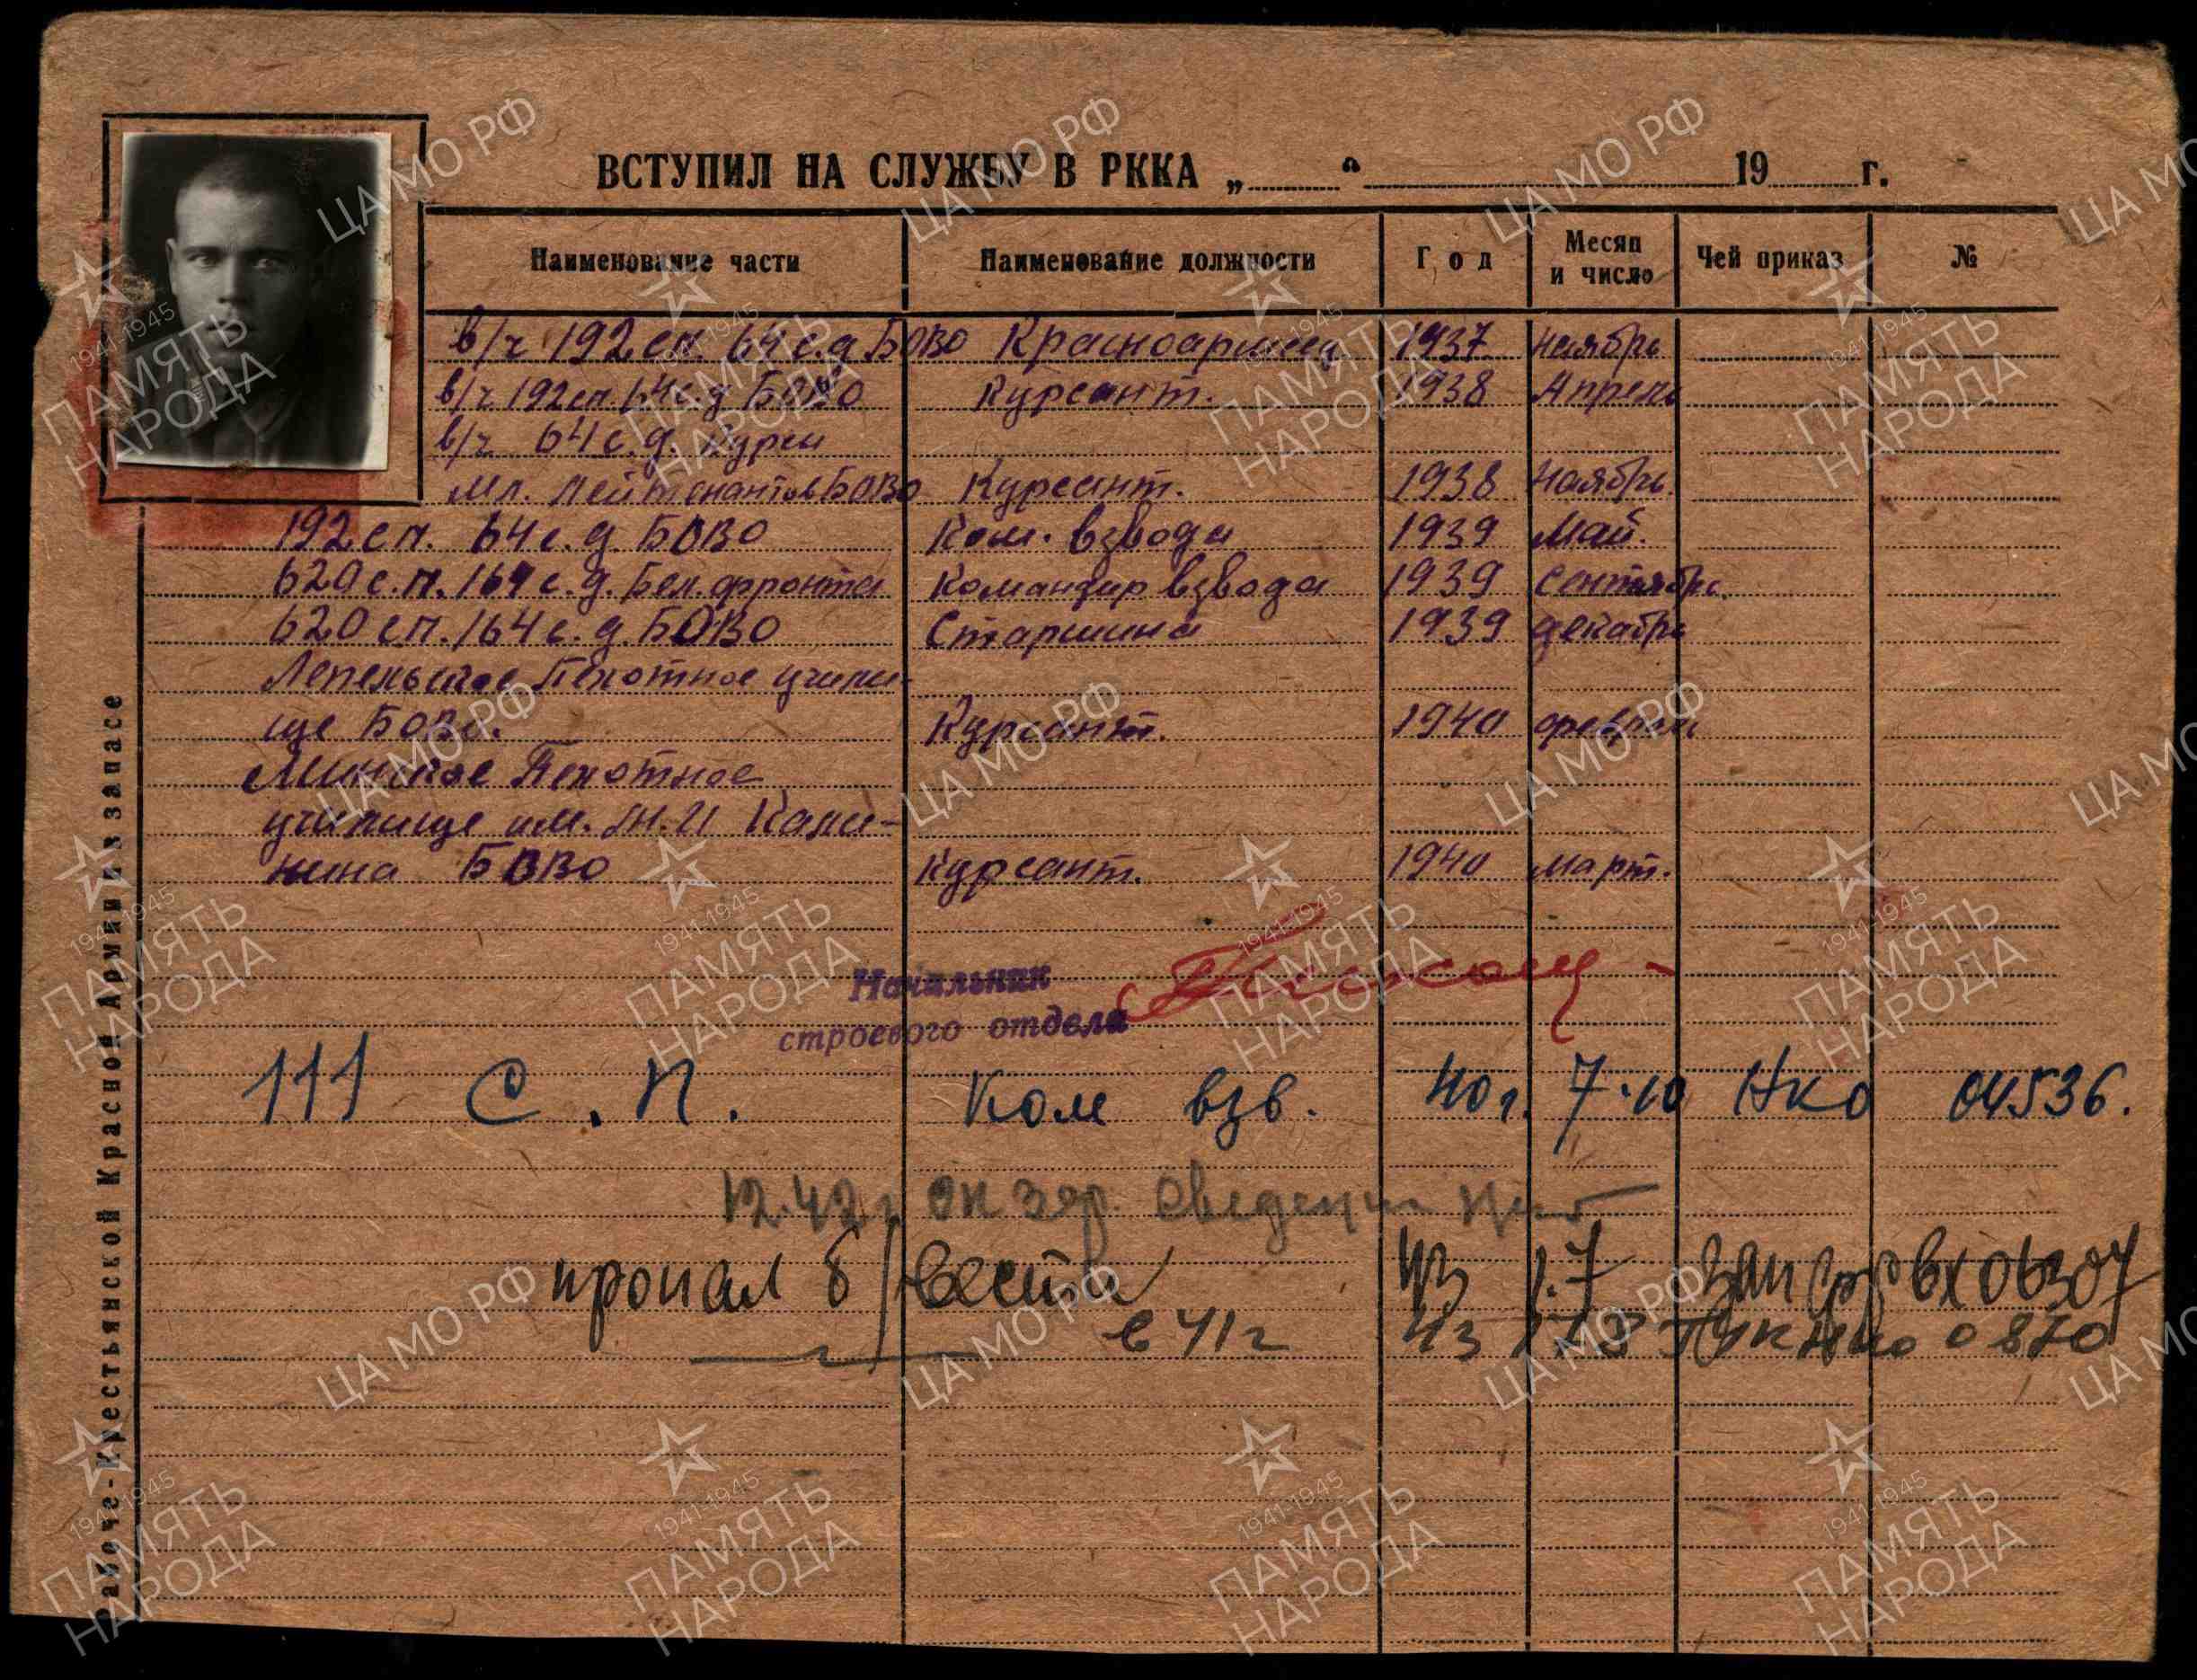 ВСТУПИЛ НА СЛУЖБУ В РККА „ “ 19 г.
Наименование части Наименование должности Год Месяц и число Чей приказ №
в/ч 192 сп. 64 с.д БОВО Красноармеец 1937 Ноябрь
в/ч 192 сп. 64 с.д БОВО Курсант. 1938 Апрель
в/ч 64 с.д. Курсы
Мл. Лейтенантов БОВО Курсант. 1938 Ноябрь.
192 сп. 64 с.д. БОВО Ком. взвода 1939 Май.
620 с.п. 164 с.д. Бел. фронта Командир взвода 1939 Сентябрь.
620 сп. 164 с.д. БОВО Старшина 1939 декабрь
Лепельское Пехотное учили-
ще БОВО. Курсант. 1940 февраль
Минское Пехотное
училище им. М.И Кали-
нина БОВО Курсант. 1940 Март.
Начальник
строевого отдела
111 С.П. Ком взв. 40 г. 7.10 НКО 04536.
12.42г сведений нет
пропал б/вести 43 1.7 вх 06307
в 41г 43 0870
Рабоче-Крестьянской Красной Армии и в запасе
ЦА МО РФ
1941-1945
ПАМЯТЬ
НАРОДА